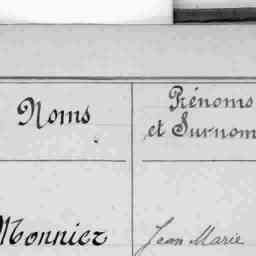 Noms
Prénoms
et Surnom
Monnier
Jean Marie